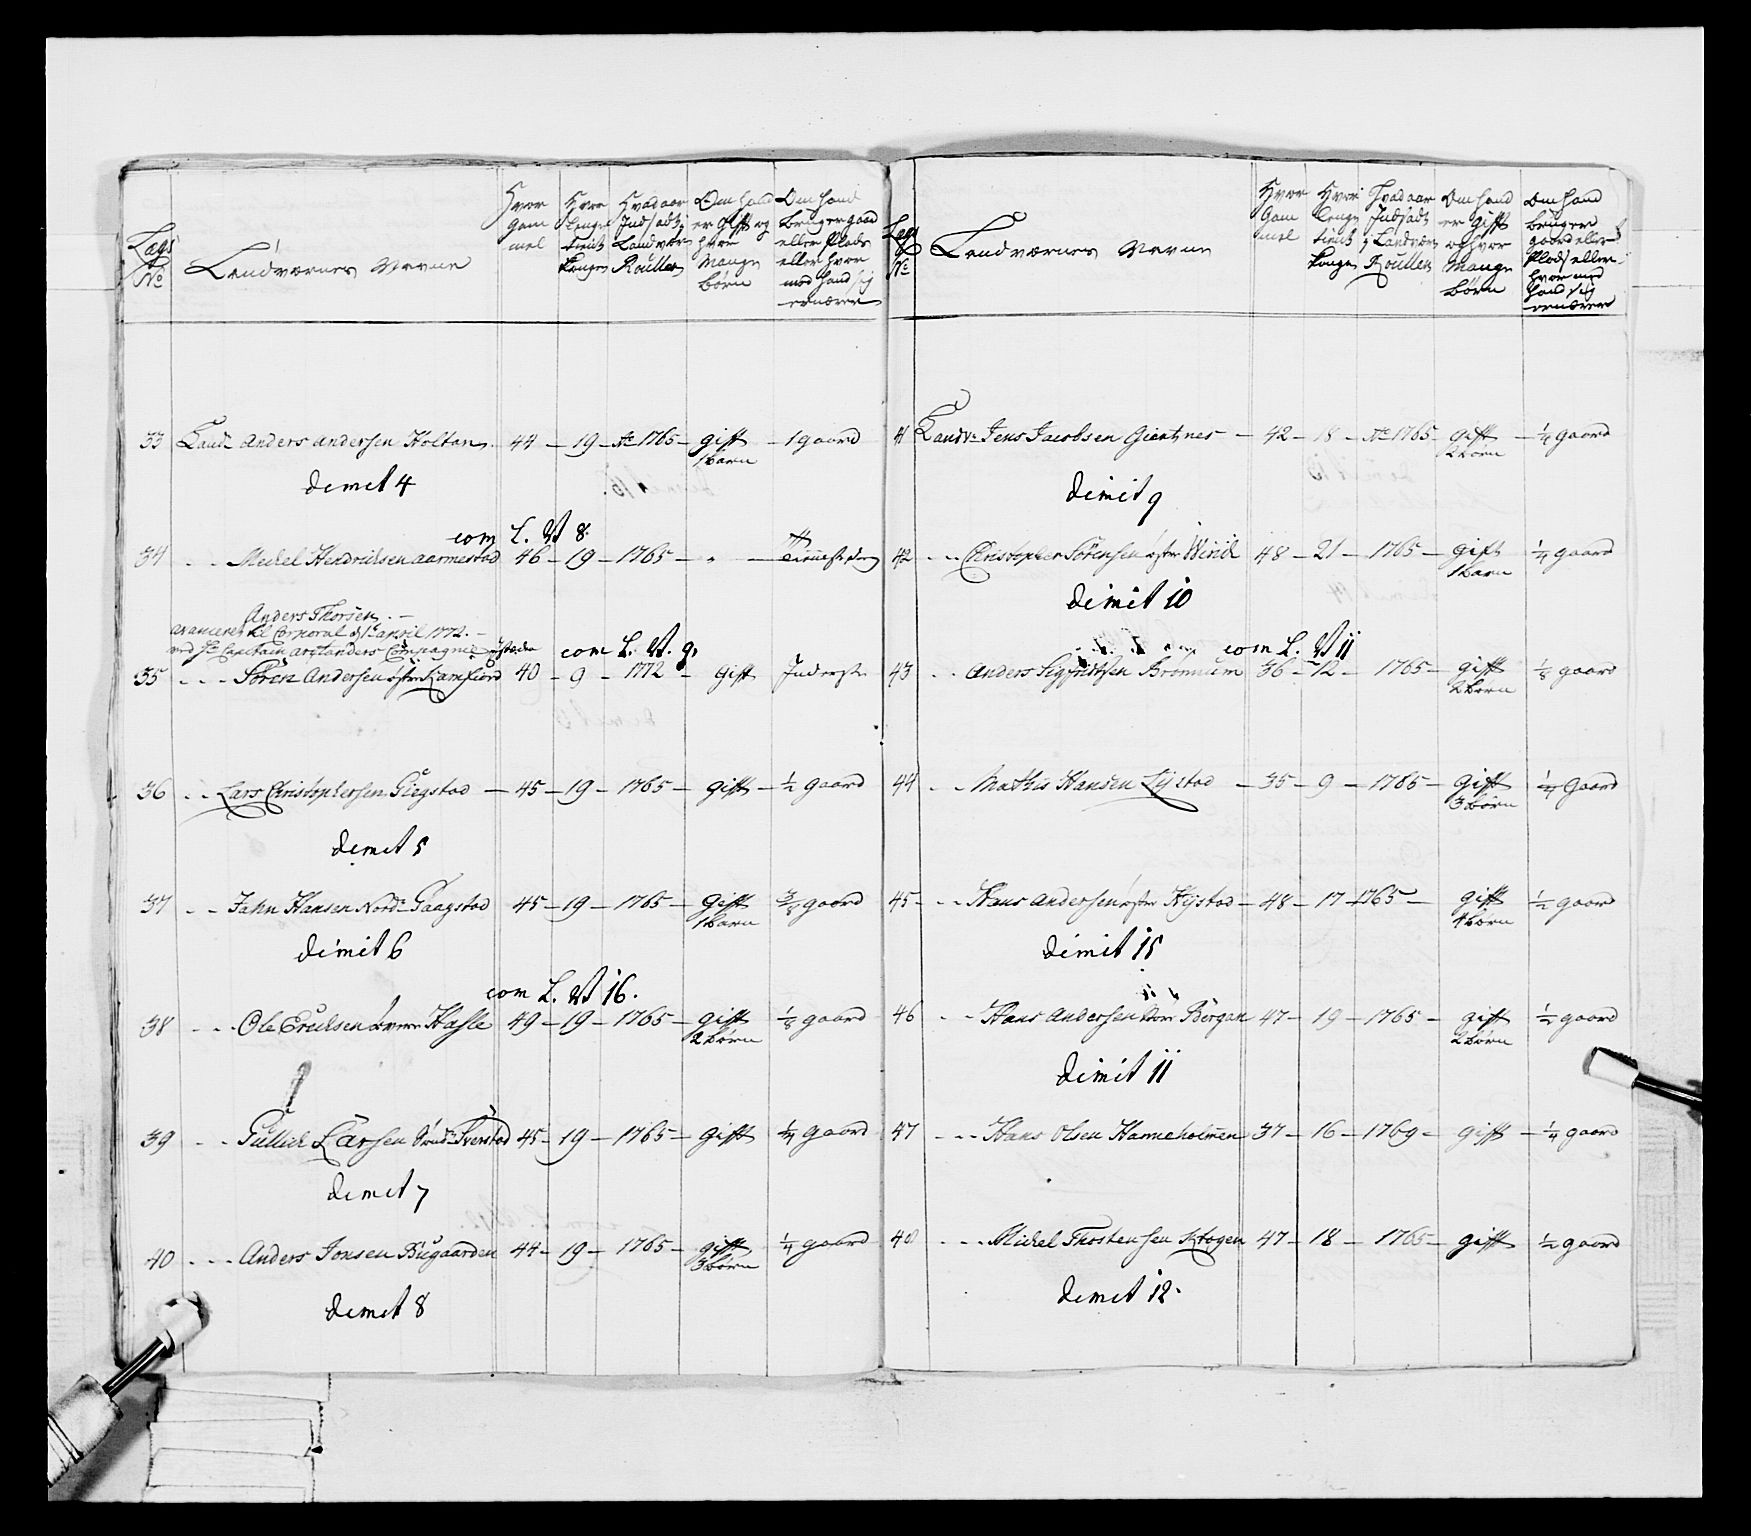 Lægs No
Landværnes Navne
Hvor Gam mel
Hvor Lenge tient Kongen
Hvad aar Indsadt i Landværs Roullen
Om hand er Gifft og hvor Mange børn
Om hand bruger gaard eller Plads eller hvor med hand sig ernærer
33 Landv. Anders Andersen Holtan 44 – 19 – Ao 1765 – gifft 1 barn – 1 gaard
dimit 4
com L. W 8.
34 Mickel Hendrichsen Aarmestad 46 – 19 – 1765 –
Anders Thorsen
avanceret til Corporal d. 1te april 1772.
ved Capitain Compagnie
com L. W. 9.
35 Sören Andersen 40 – 9 – 1772 – gift Inderst
36 Lars Christophersen Giegstad – 45 – 19 – 1765 – gifft – 1/2 gaard
dimit 5
37 Jahn Hansen Nordr Gaagstad 45 – 19 – 1765 – Gifft 1 barn 3/8 gaard
dimit 6
com L. W 16.
38 Ole Erichsen Hasle 49 – 19 – 1765 – gifft 2 börn 1/8 gaard
39 Gullich Larsen Sverstad 45 – 19 – 1765 – gifft 1/4 gaard
dimit 7
40 Anders Jonsen Bugaarden 44 – 19 – 1765 – gifft 3 börn 1/4 gaard
dimit 8
Lægs No
Landværnes Navne
Hvor Gam mel
Hvor Lenge tient Kongen
Hvad aar Indsadt i Landværs Roullen
Om hand er Gifft og hvor Mange børn
Om hand bruger gaard eller Plads eller hvor med hand sig ernærer
41 Landv. Jens Jacobsen Giertnes – 42 – 18 – Ao 1765 – gifft 2 börn – 1/4 gaard
dimit 9
42 Christopher Sörensen öfre Wirid 48 – 21 – 1765 – gift 1 barn 1/4 gaard
dimit 10
com L. W 11
43 Anders Sigfridtsen Bromum 36 – 12 – 1765 – gifft 2 börn 1/8 gaard
44 Mathis Hansen Lystad – 35 – 9 – 1765 – gifft 3 börn 1/4 Gaard
45 Hans Andersen öfre Hystad – 48 – 17 – 1765 – gifft 4 börn 1/2 gaard
dimit 15
46 Hans Andersen Store Bergan 47 – 19 – 1765 – gift 2 börn 1/2 gaard
dimit 11
47 Hans Olsen Hanneholmen 37 – 16 – 1769 – gifft – 1/4 gaard
48 Mickel Thostensen Krogen 47 – 18 – 1765 – gifft – 1/2 gaard
dimit 12.